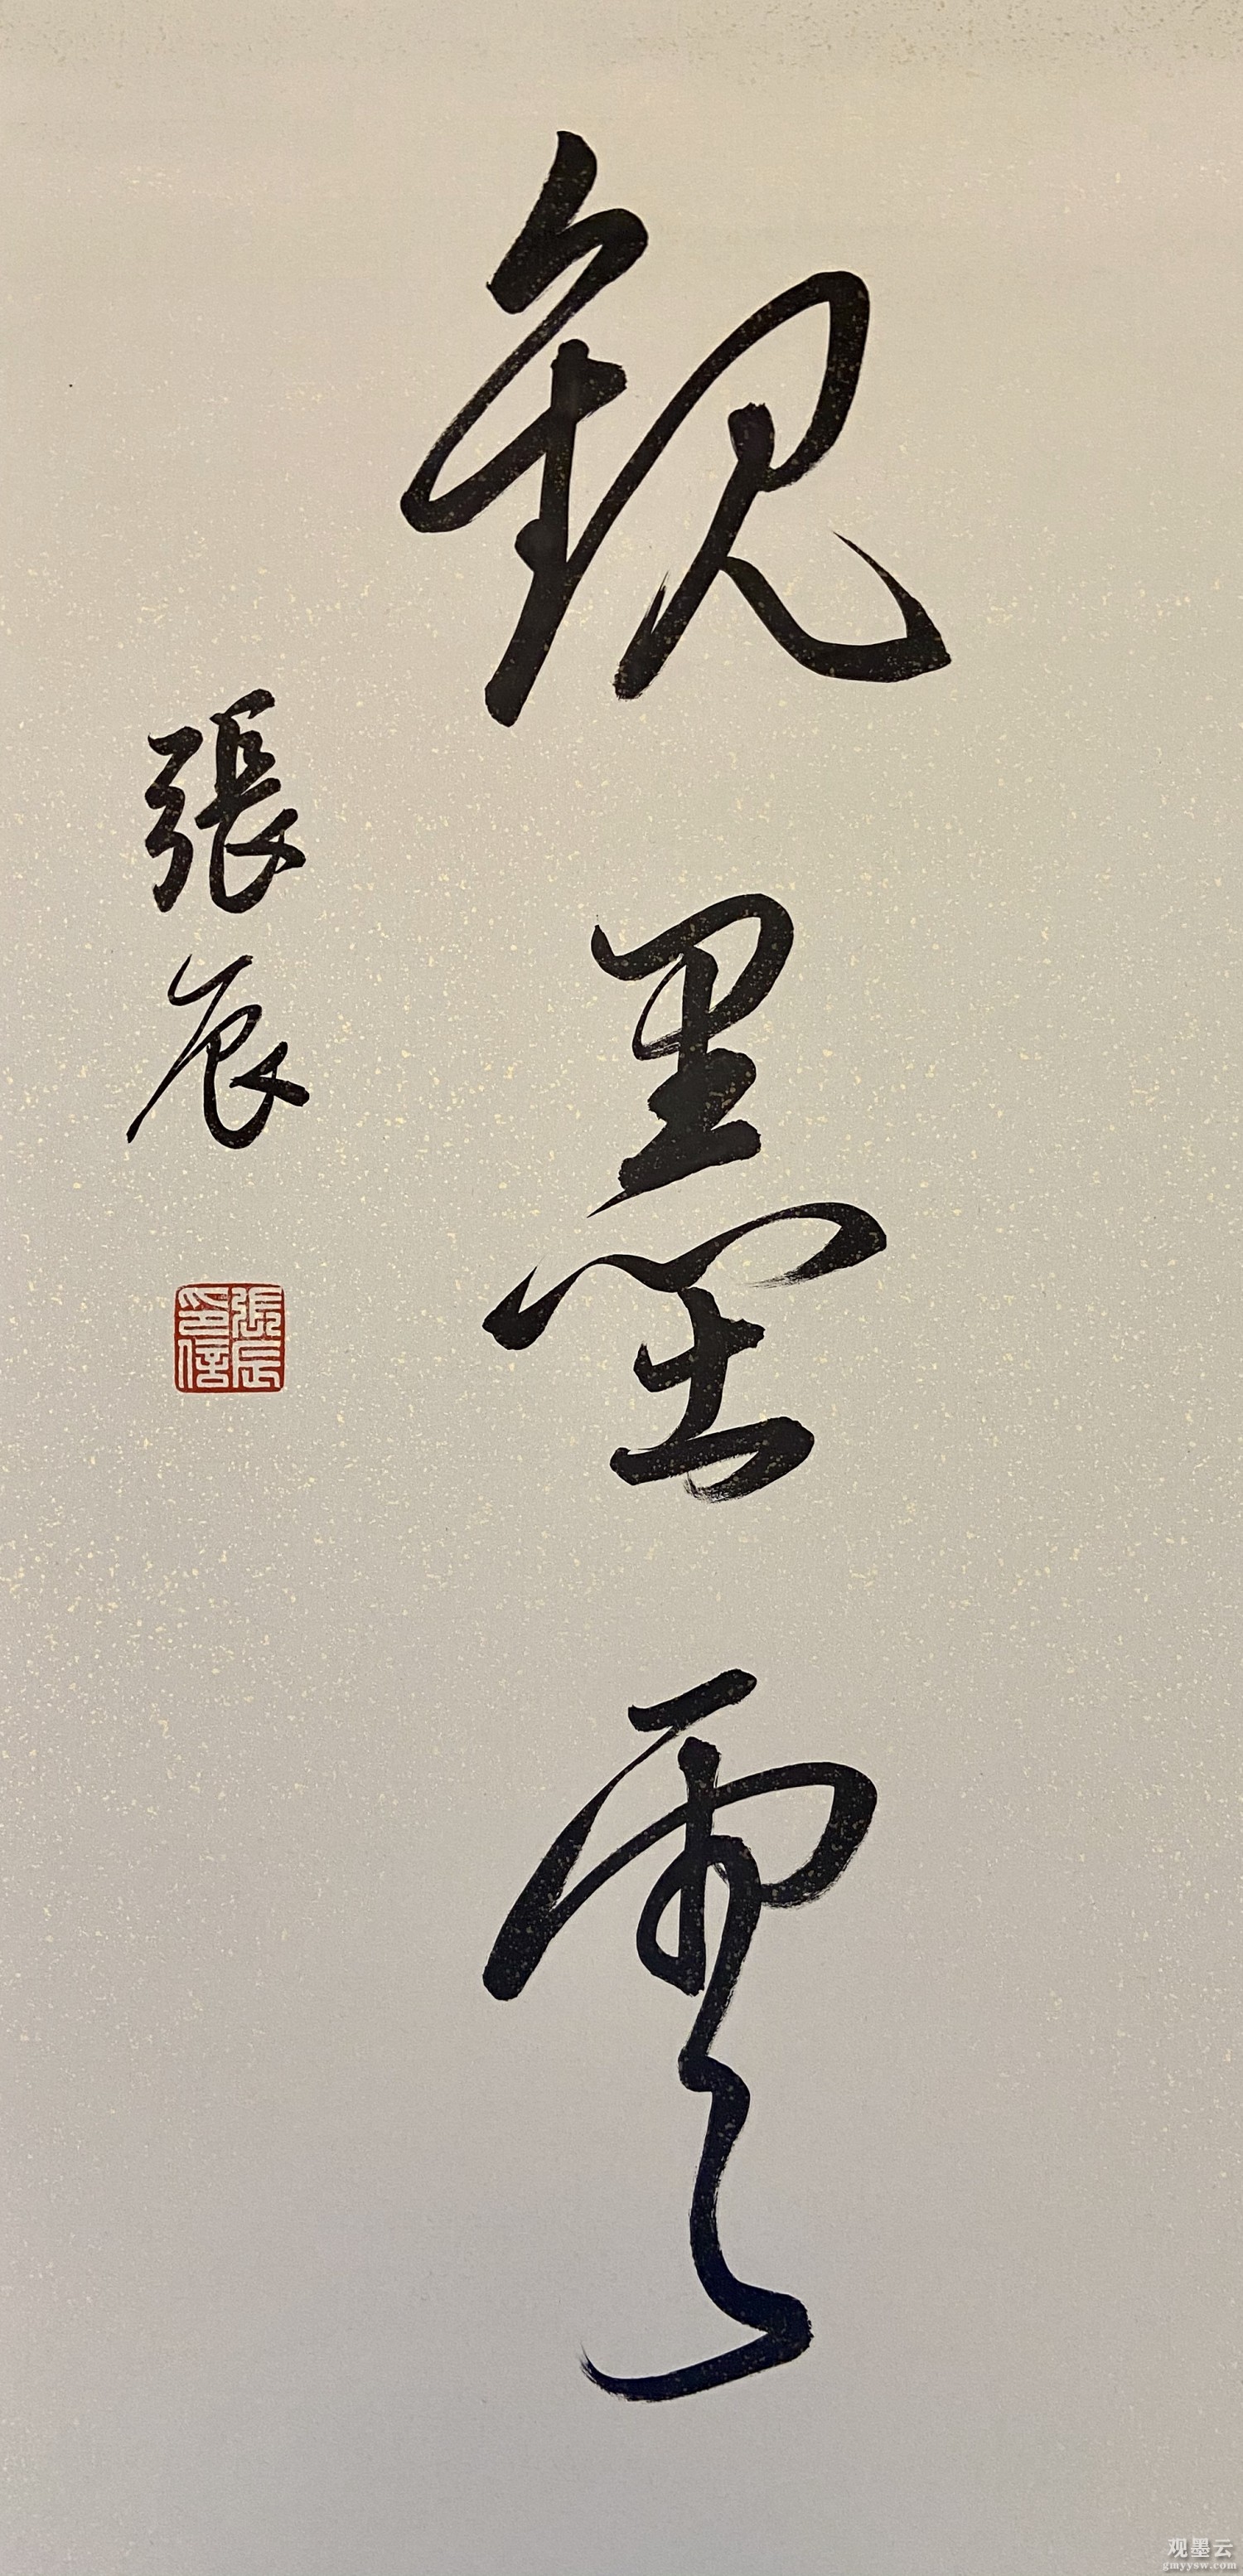 觀墨雲
張辰
張辰印信
观墨云
gmyysw.com